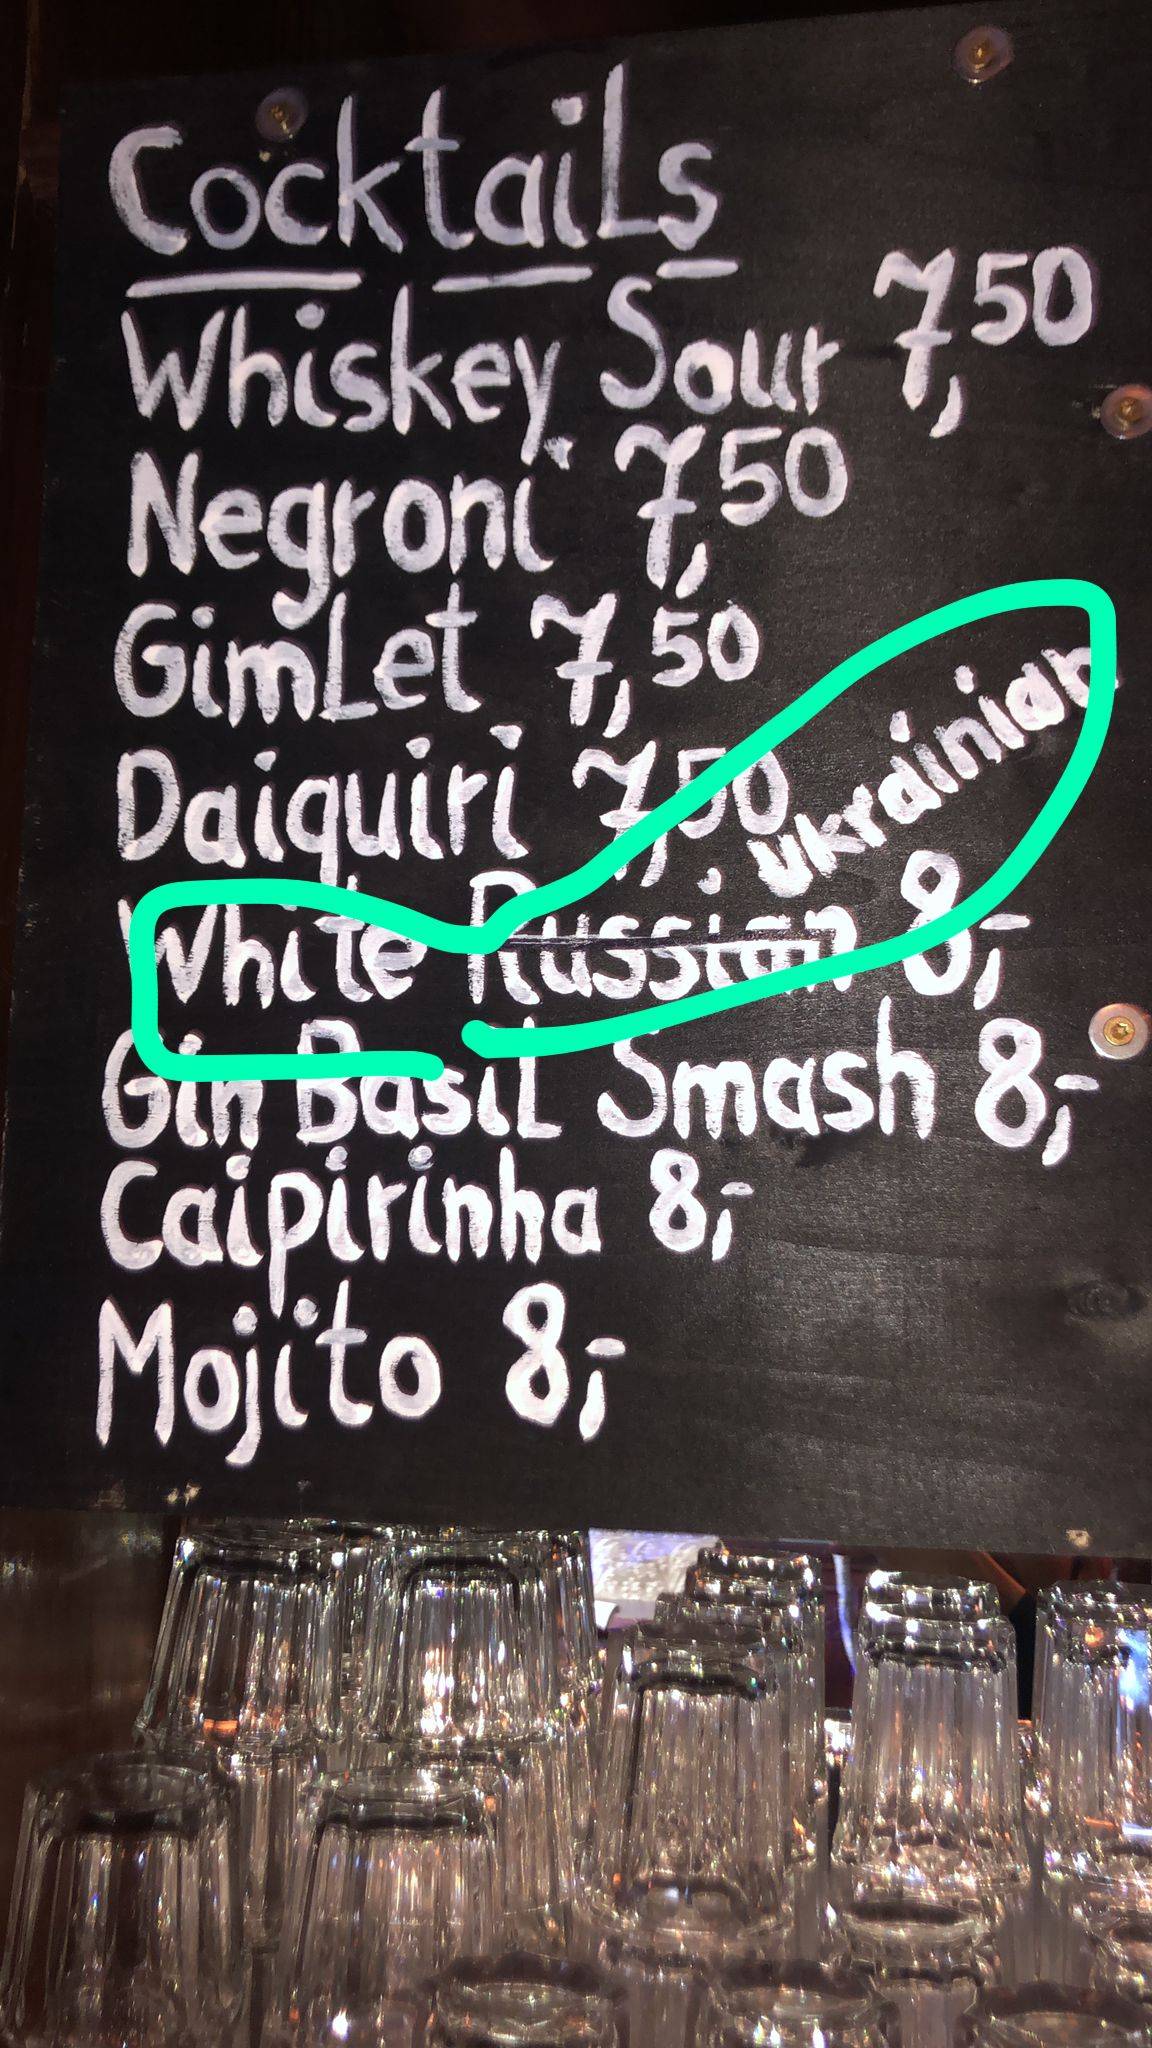 Cocktails
Whiskey Sour 7,50
Negroni 7,50
Gimlet 7,50
Daiquiri 7,50
Ukrainian
White Russian 8,-
Gin Basil Smash 8,-
Caipirinha 8,-
Mojito 8,-